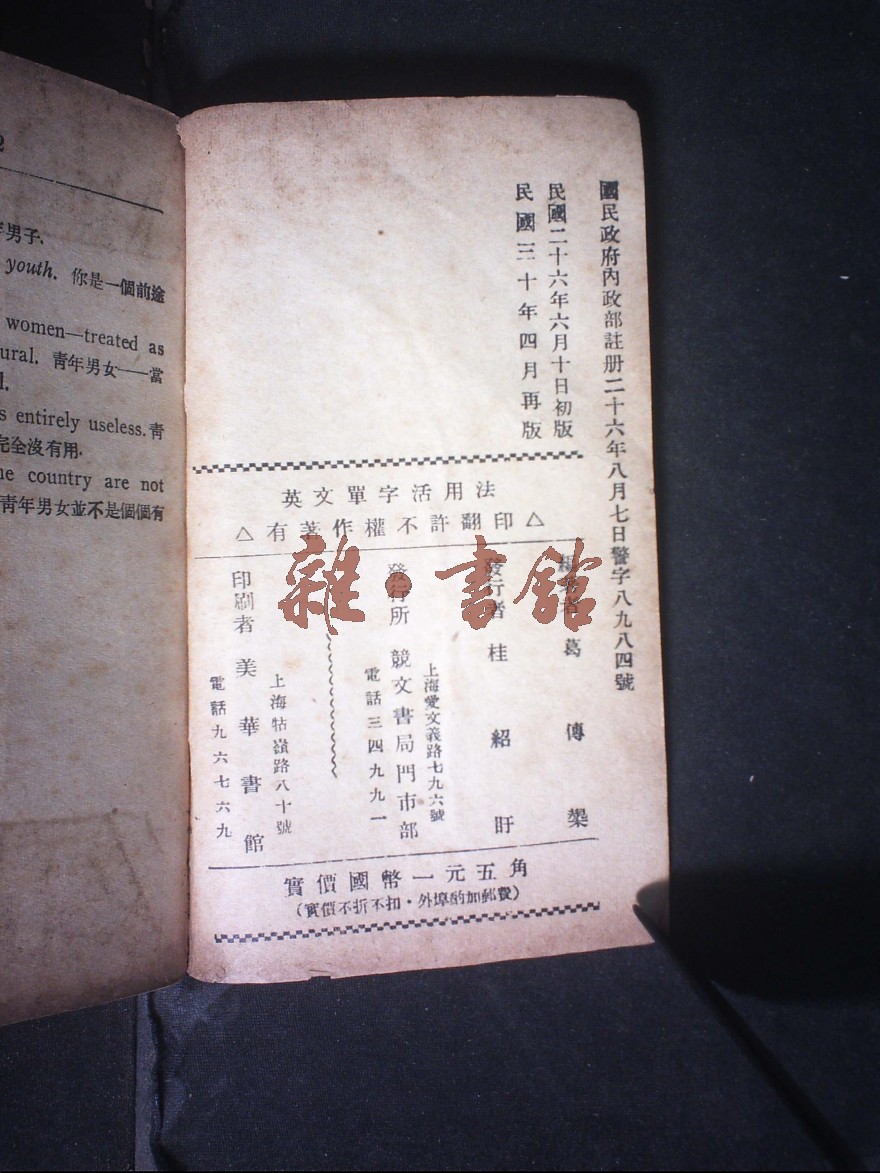 2
年男子.
youth. 你是一個前途
women—treated as
ural. 靑年男女——當
l.
s entirely useless. 靑
完全沒有用.
he country are not
靑年男女並不是個個有
國民政府內政部註册二十六年八月七日警字八九八四號
民國二十六年六月十日初版
民國三十年四月再版
英文單字活用法
△有著作權不許翻印△
葛傳槼
發行者 桂紹盱
上海愛文義路七九六號
發行所 競文書局門市部
電話三四九九一
上海牯嶺路八十號
印刷者 美華書館
電話九六七六九
實價國幣一元五角
(實價不折不扣·外埠酌加郵費)
雜·書館